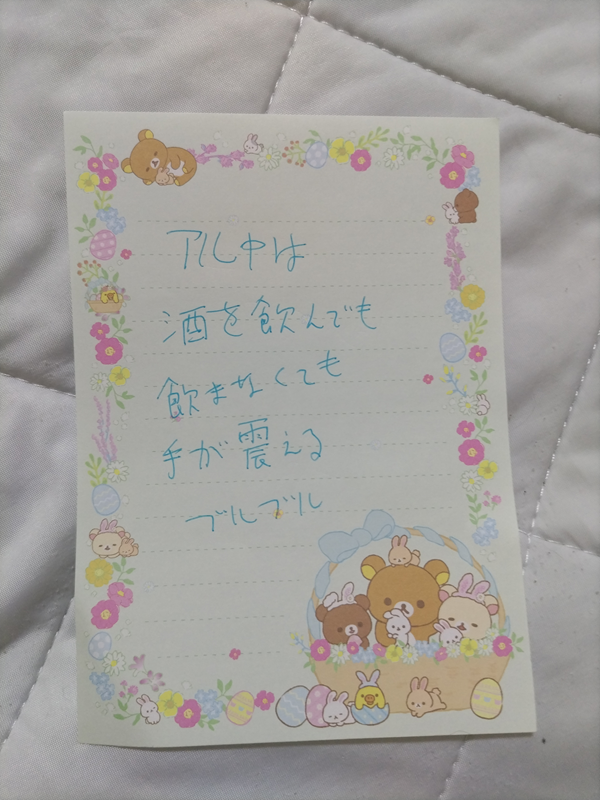 アル中は
酒を飲んでも
飲まなくても
手が震える
ブルブル